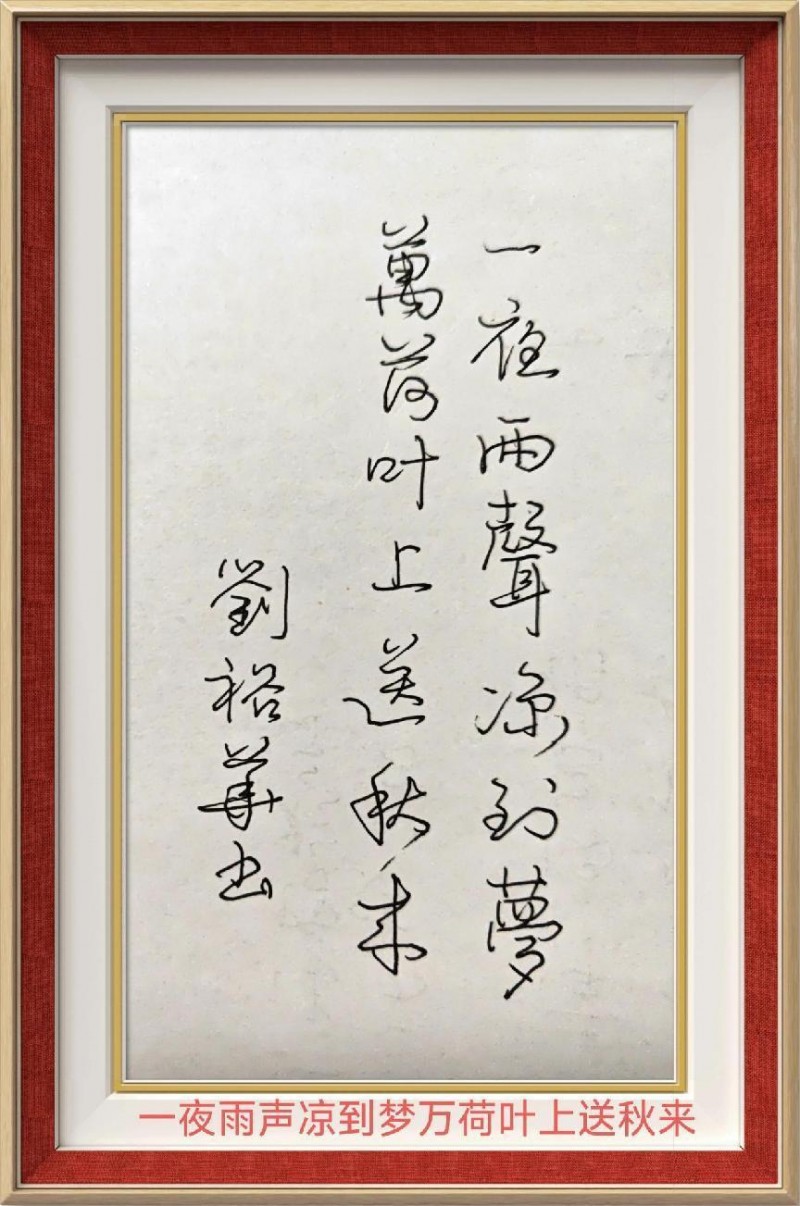 一夜雨聲凉到夢
萬荷叶上送秋来
劉裕華书
一夜雨声凉到梦万荷叶上送秋来